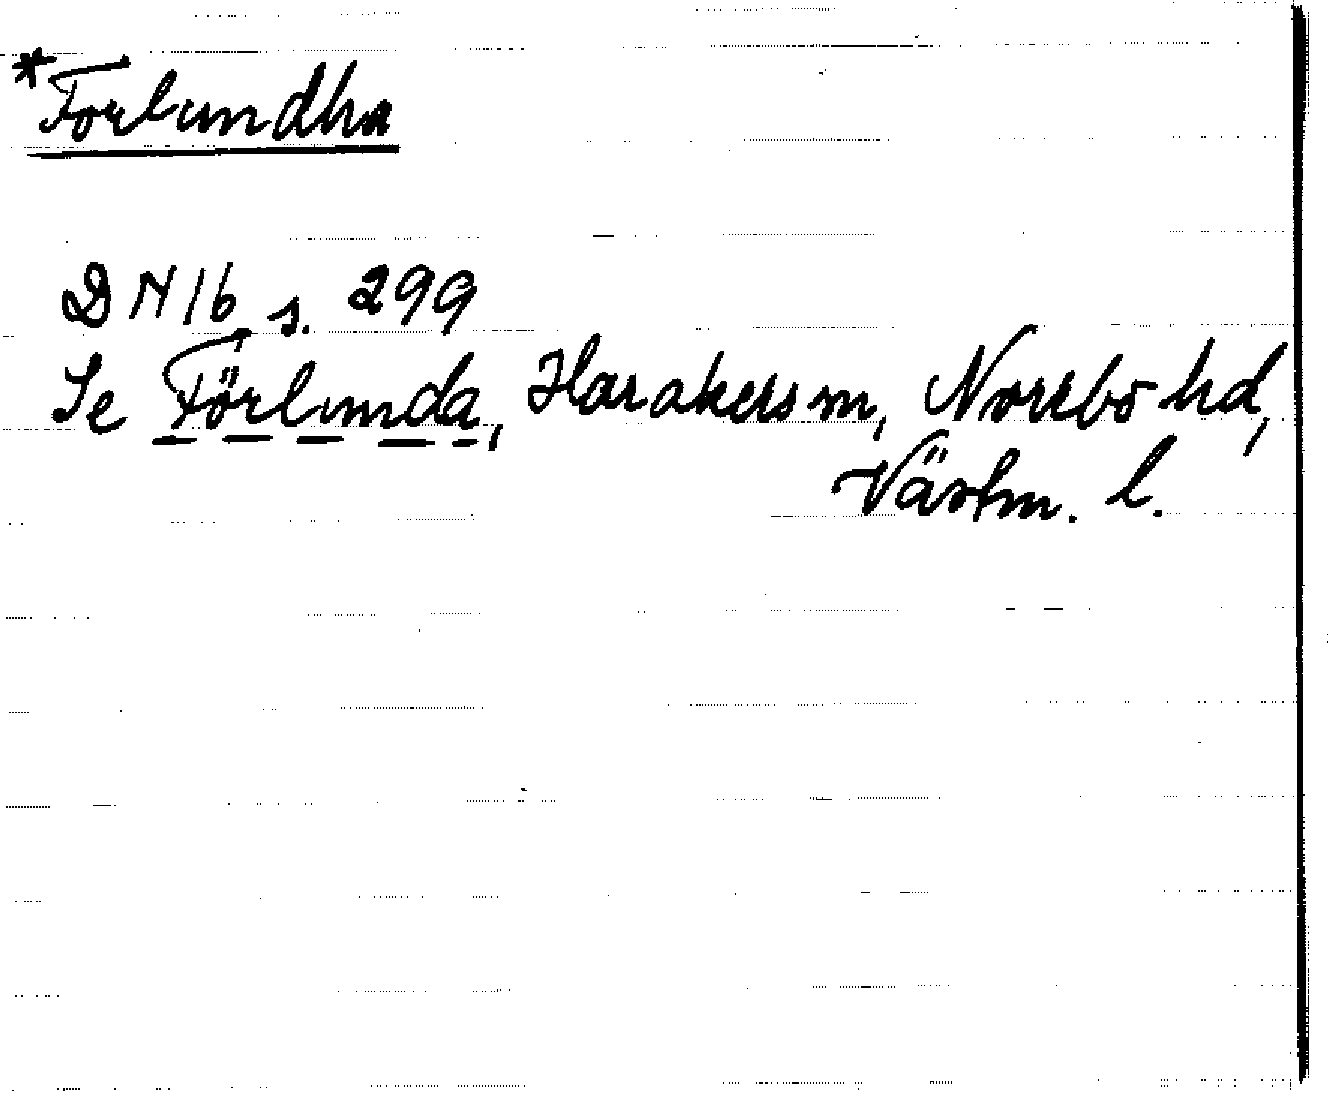 *Forlundha
DN 16, s. 299
Se Förlunda, Harakers sn, Norrbo hd,
Västm. l.